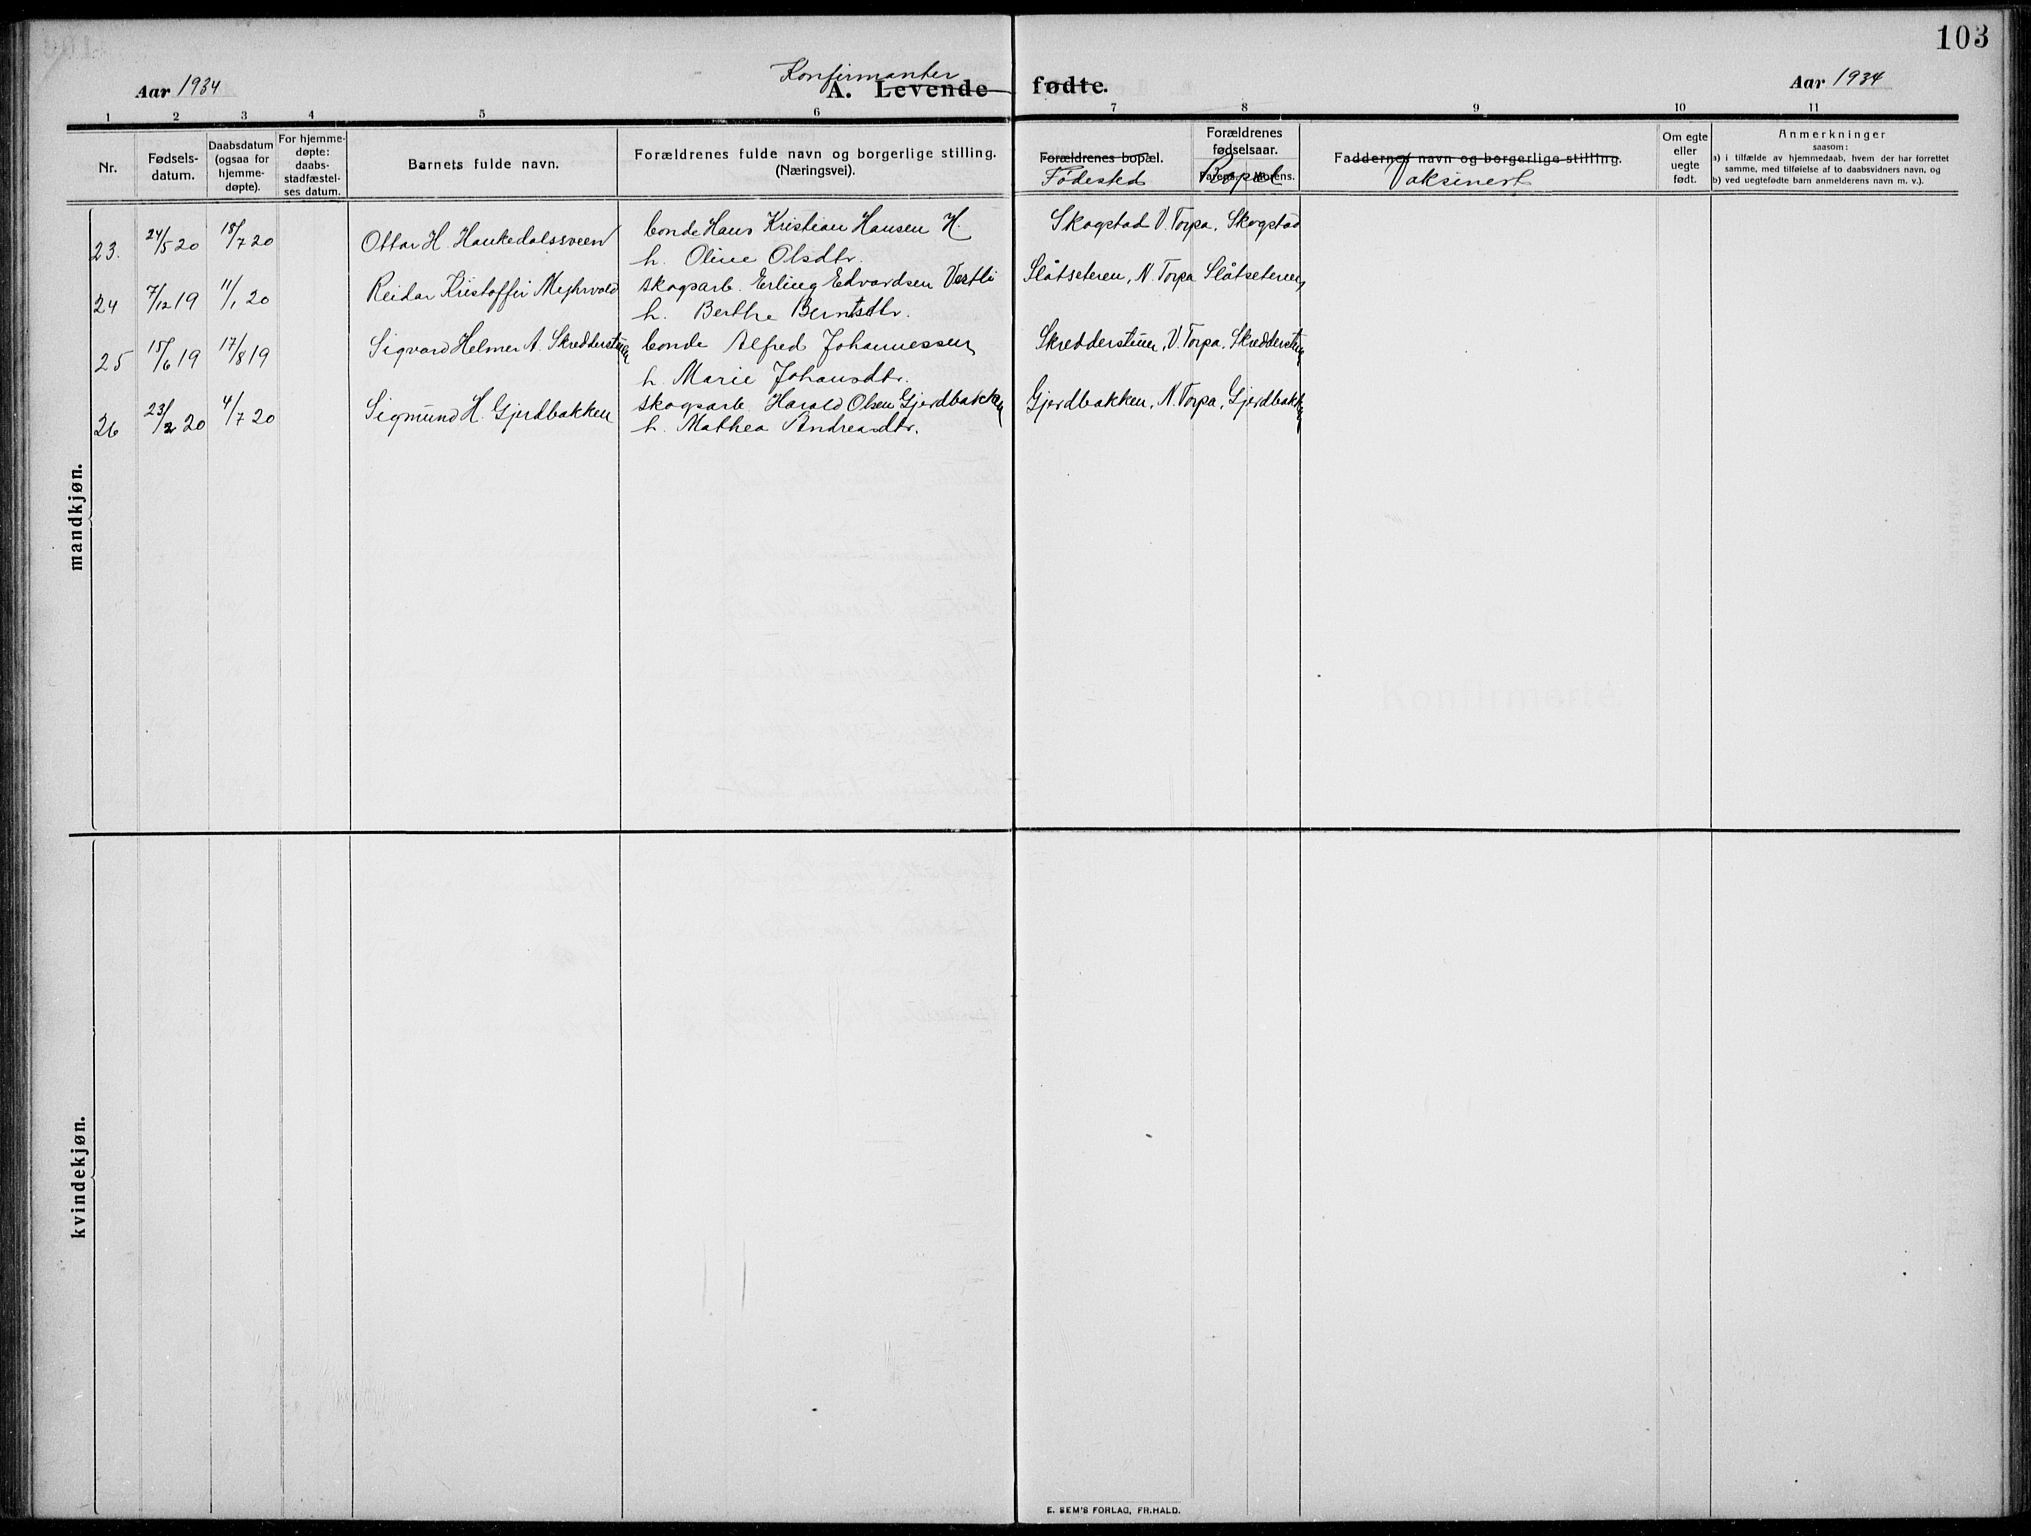 103
Aar 1934
Konfirmanter
A. Levende fødte.
Aar 1934
1 2 3 4 5 6 7 8 9 10 11
Nr.
Fødsels-
datum.
Daabsdatum
(ogsaa for
hjemme-
døpte).
For hjemme-
døpte:
daabs-
stadfæstel-
ses datum.
Barnets fulde navn.
Forældrenes fulde navn og borgerlige stilling.
(Næringsvei).
Forældrenes bopæl.
Fødested
Forældrenes
fødselsaar.
Farens. Morens.
Bopæl
Faddernes navn og borgerlige stilling.
Vaksinert
Om egte
eller
uegte
født.
Anmerkninger
saasom:
a) i tilfælde av hjemmedaab, hvem der har forrettet
samme, med tilføielse af to daabsvidners navn, og
b) ved uegtefødte barn anmelderens navn m. v.).
mandkjøn.
23. 24/5 20 18/7 20 Ottar H. Haukedalssveen bonde Hans Kristian Hansen H. Skogstad V. Torpa, Skogstad
h. Oline Olsdtr.
24 7/12 19 11/1 20 Reidar Kristoffer skogsarb. Erling Edvardsen Vestli Slåtseteren, N. Torpa Slåtseteren
h. Berthe Berntsdtr.
25 15/6 19 17/8 19 Sigvard Helmer A. Skredderstuen bonde Alfred Johannessen Skredderstuen, V. Torpa, Skredderstuen
h. Marie Johansdtr.
26 23/2 20 4/7 20 Sigmund H. Gjerdbakken skogsarb. Harald Olsen Gjerdbakken Gjerdbakken, N. Torpa, Gjerdbakken
h. Mathea Andreasdtr.
kvindekjøn.
E. SEM'S FORLAG, FR.HALD.